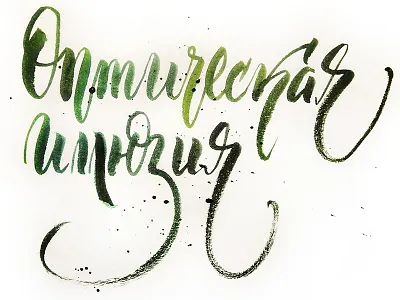 Оптическая
иллюзия